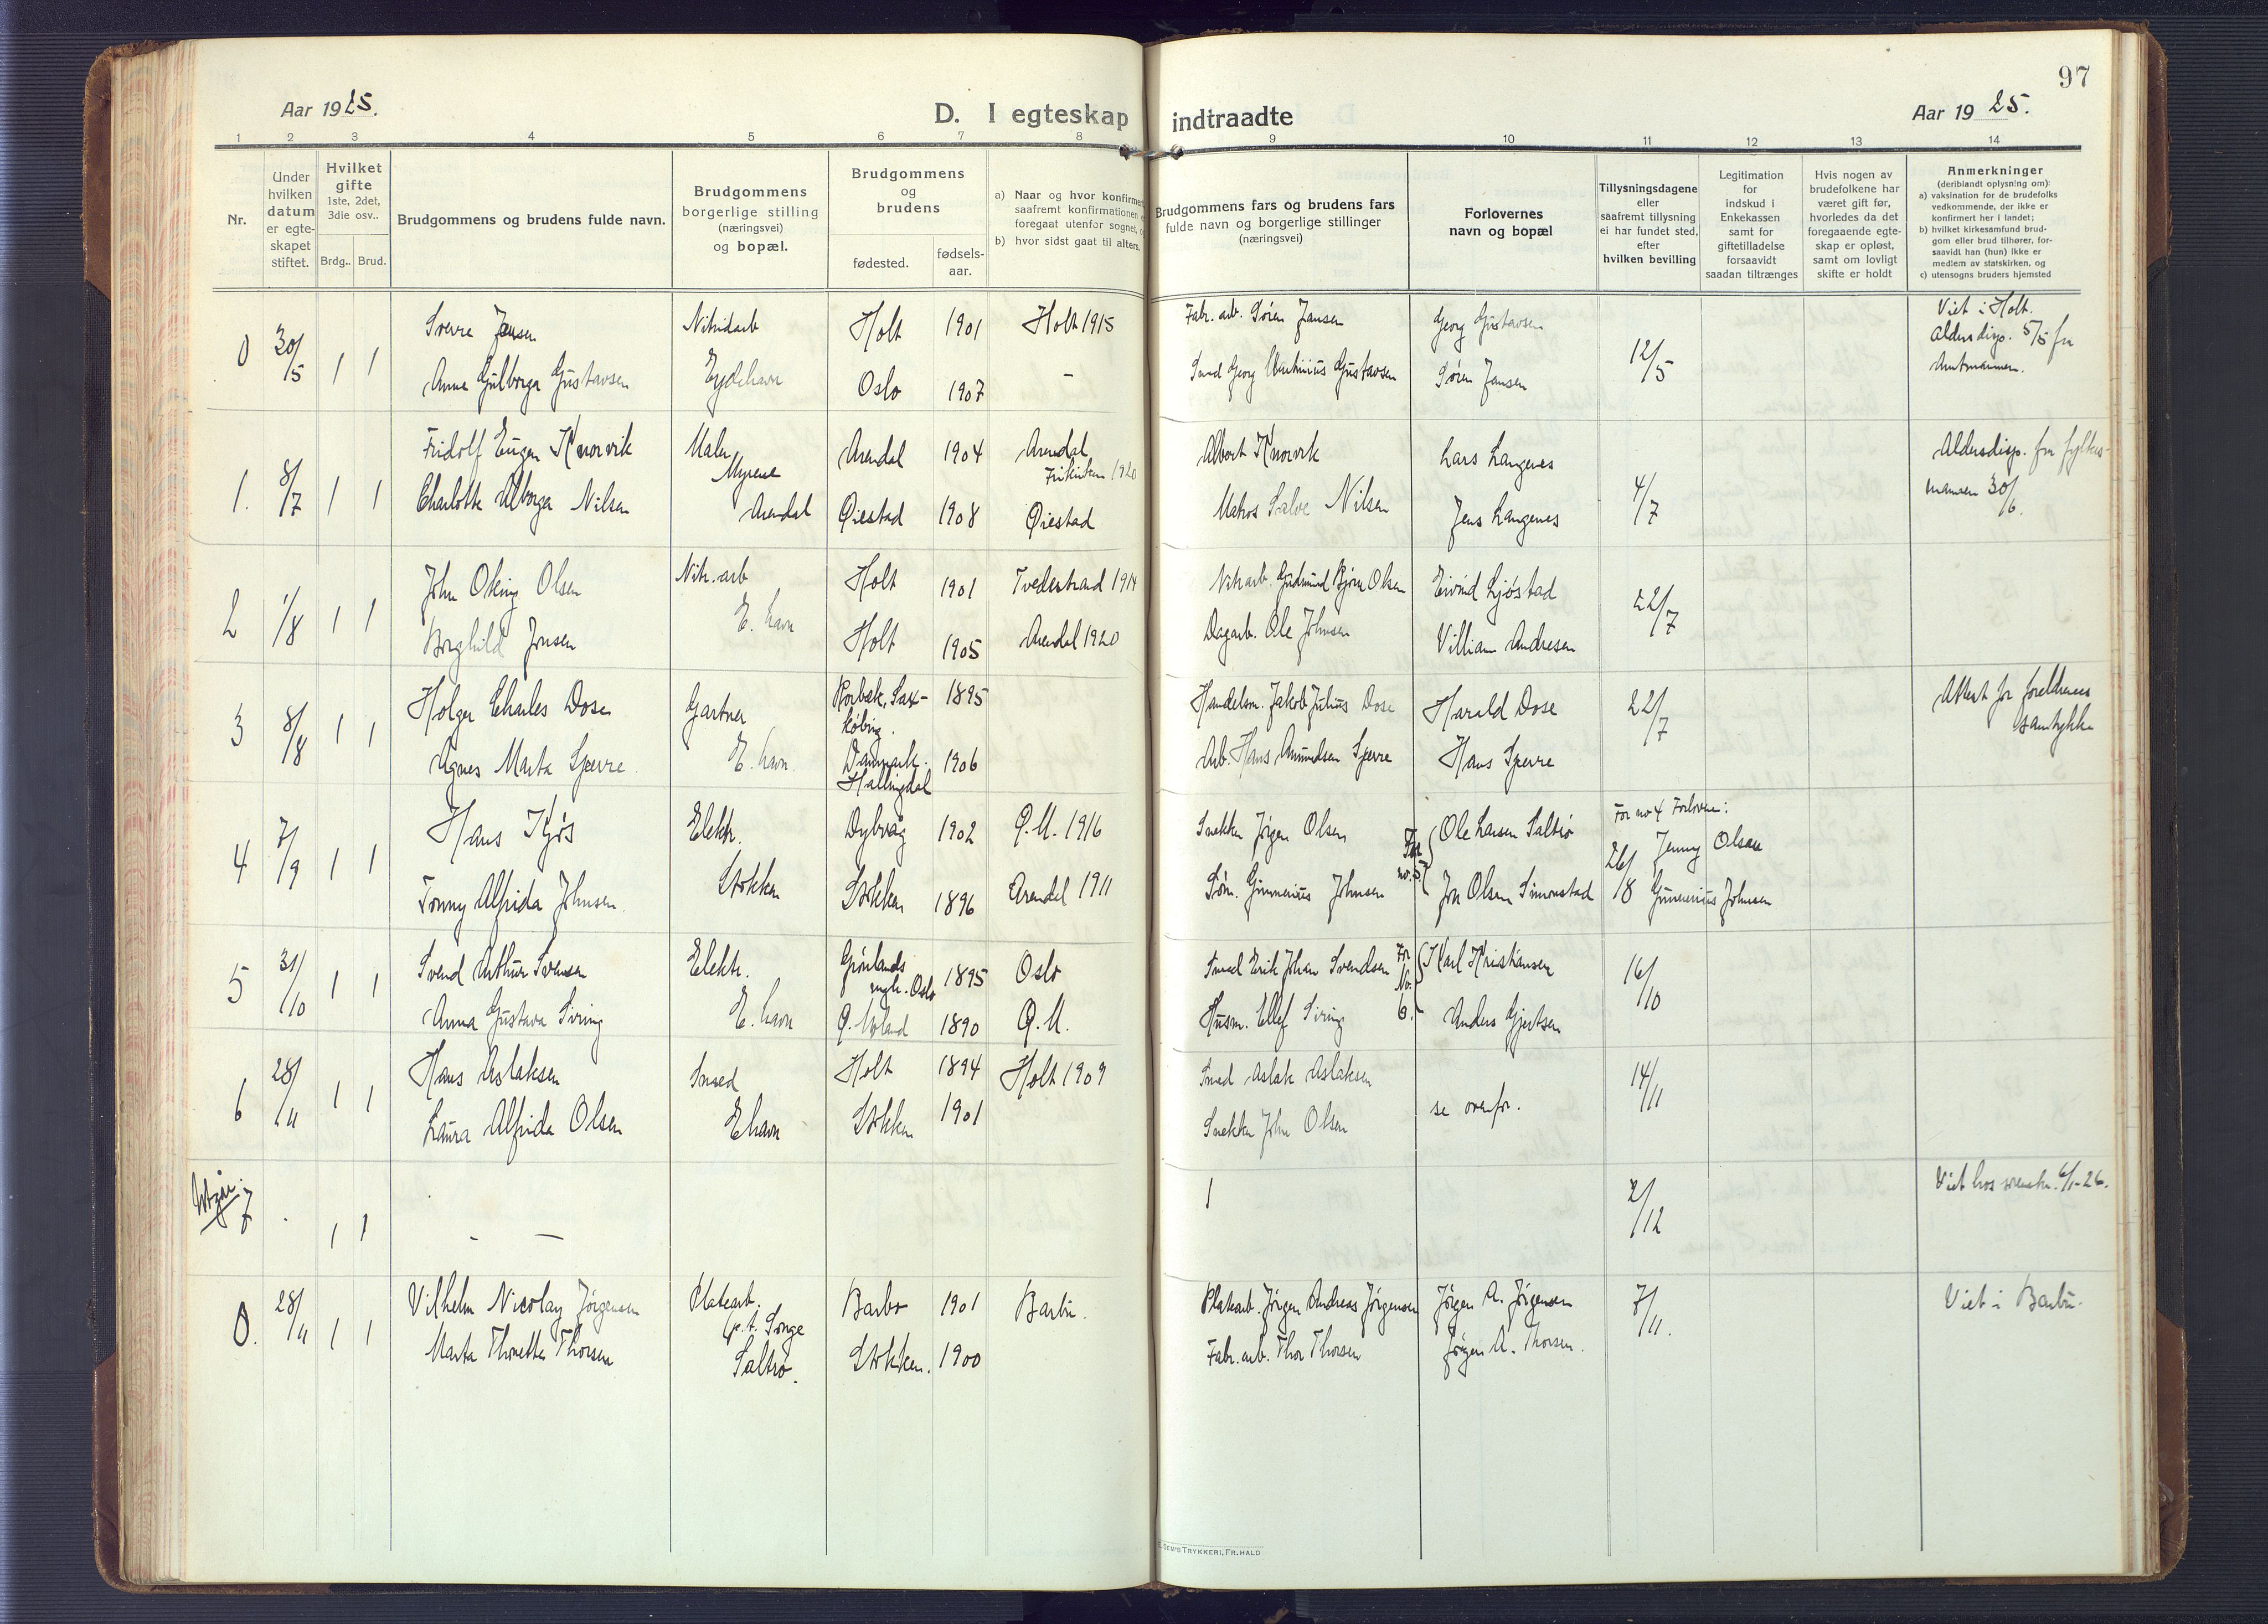 97
Aar 1925.
D. I egteskap indtraadte
Aar 1925.
1 2 3 4 5 6 7 8 9 10 11 12 13 14
Nr.
Under
hvilken
datum
er egte-
skapet
stiftet.
Hvilket
gifte
1ste, 2det,
3die osv..
Brdg.. Brud.
Brudgommens og brudens fulde navn.
Brudgommens
borgerlige stilling
(næringsvei)
og bopæl.
Brudgommens
og
brudens
fødested.
fødsels-
aar.
a) Naar og hvor konfirmert
saafremt konfirmationen
foregaat utenfor sognet,
b) hvor sidst gaat til alters.
Brudgommens fars og brudens fars
fulde navn og borgerlige stillinger
(næringsvei)
Forlovernes
navn og bopæl
Tillysningsdagene
eller
saafremt tillysning
ei har fundet sted,
efter
hvilken bevilling
Legitimation
for
indskud i
Enkekassen
samt for
giftetilladelse
forsaavidt
saadan tiltrænges
Hvis nogen av
brudefolkene har
været gift før,
hvorledes da det
foregaaende egte-
skap er opløst,
samt om lovligt
skifte er holdt
Anmerkninger
(deriblandt oplysning om):
a) vaksination for de brudefolks
vedkommende, der ikke er
konfirmert her i landet;
b) hvilket kirkesamfund brud-
gom eller brud tilhører, for-
saavidt han (hun) ikke er
medlem av statskirken, og
c) utensogns bruders hjemsted
0 30/5 1 1 Sverre Jensen Nitridarb Holt 1901 Holt 1915 Fabr. arb. Søren Jansen Georg Gustavsen 12/5 Viet i Holt.
Aldersdisp. 5/5 fra
Amtmannen.
Anna Gulborga Gustavsen Eydehavn Oslo 1907 - Smed Georg Gustavsen Søren Jansen
1. 8/7 1 1 Fridolf Eugen Knorvik Maler Arendal 1904 Arendal
Frikirken 1920 Albert Knorvik Lars Langenes 4/7 Aldersdisp. fra fylkes-
mannen 30/6.
Charlotte Alborga Nilsen Myrene
Arendal Øiestad 1908 Øiestad Matros Salve Nilsen Jens Langenes
2 1/8 1 1 John Olsen Nitr. arb Holt 1901 Tvedestrand 1914 Nitr arb. Gudmund Bjørn Olsen Eivind Ljøstad 22/7
Borghild Jonsen E. havn Holt 1905 Arendal 1920 Dagarb. Ole Johnsen Villiam Andresen
3 8/8 1 1 Holger Charles Dose Gartner Sax-
købing.
Danmark. 1895 Handelsm. Jakob Julius Dose Harald Dose 22/7 Attest for foreldrenes
samtykke
Agnes Marta Sperre E. havn Hallingdal 1906 Arb. Hans Amundsen Sperre Hans Sperre
4 7/9 1 1 Hans Kjøs Elektr. Dybvåg 1902 Ø.M. 1916 Snekker Jørgen Olsen For
no. 5 Ole Larsen Saltrø For no 4 Forlovere:
Jenny Olsen 26/8
Tonny Alfrida Johnsen Stokken Stokken 1896 Arendal 1911 Søm. Gunnerius Johnsen Jon Olsen Simonstad Gunnerius Johnsen
5 31/10 1 1 Svend Arthur Svensen Elektr. Grønlands
mgh. Oslo 1895 Oslo Smed Erik Johan Svendsen For
No.
6. Karl Kristiansen 16/10
Anna Gustava Siring E. havn Ø. Moland 1890 Ø.M. Husm. Ellef Siring Anders Gjertsen
6 28/11 1 1 Hans Aslaksen Smed Holt 1894 Holt 1909 Smed Aslak Aslaksen se ovenfor. 14/11
Laura Alfrida Olsen Ehavn Stokken 1901 Snekker John Olsen
Utgår.
7 1 1 - - 1 2/12 Viet hos 6/1-26.
0. 28/11 1 1 Vilhelm Nicolay Jørgensen Platearb. Barbo 1901 Barbu. Platearb. Jørgen Andreas Jørgensen Jørgen A. Jørgensen 7/11. Viet i Barbu.
Marta Thonette Thorsen p. t. Songe
Saltrø. Stokken. 1900 Fabr. arb. Thor Thorsen Jørgen A. Thorsen.
TRYKKERI, FR. HALD